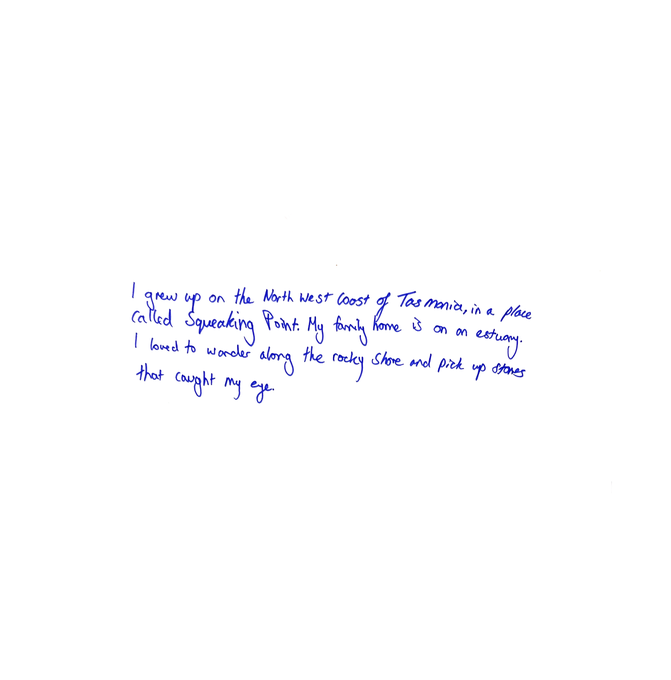 I grew up on the North West Coast of Tasmania, in a place
called Squeaking Point. My family home is on an estuary.
I loved to wander along the rocky shore and pick up stones
that caught my eye.